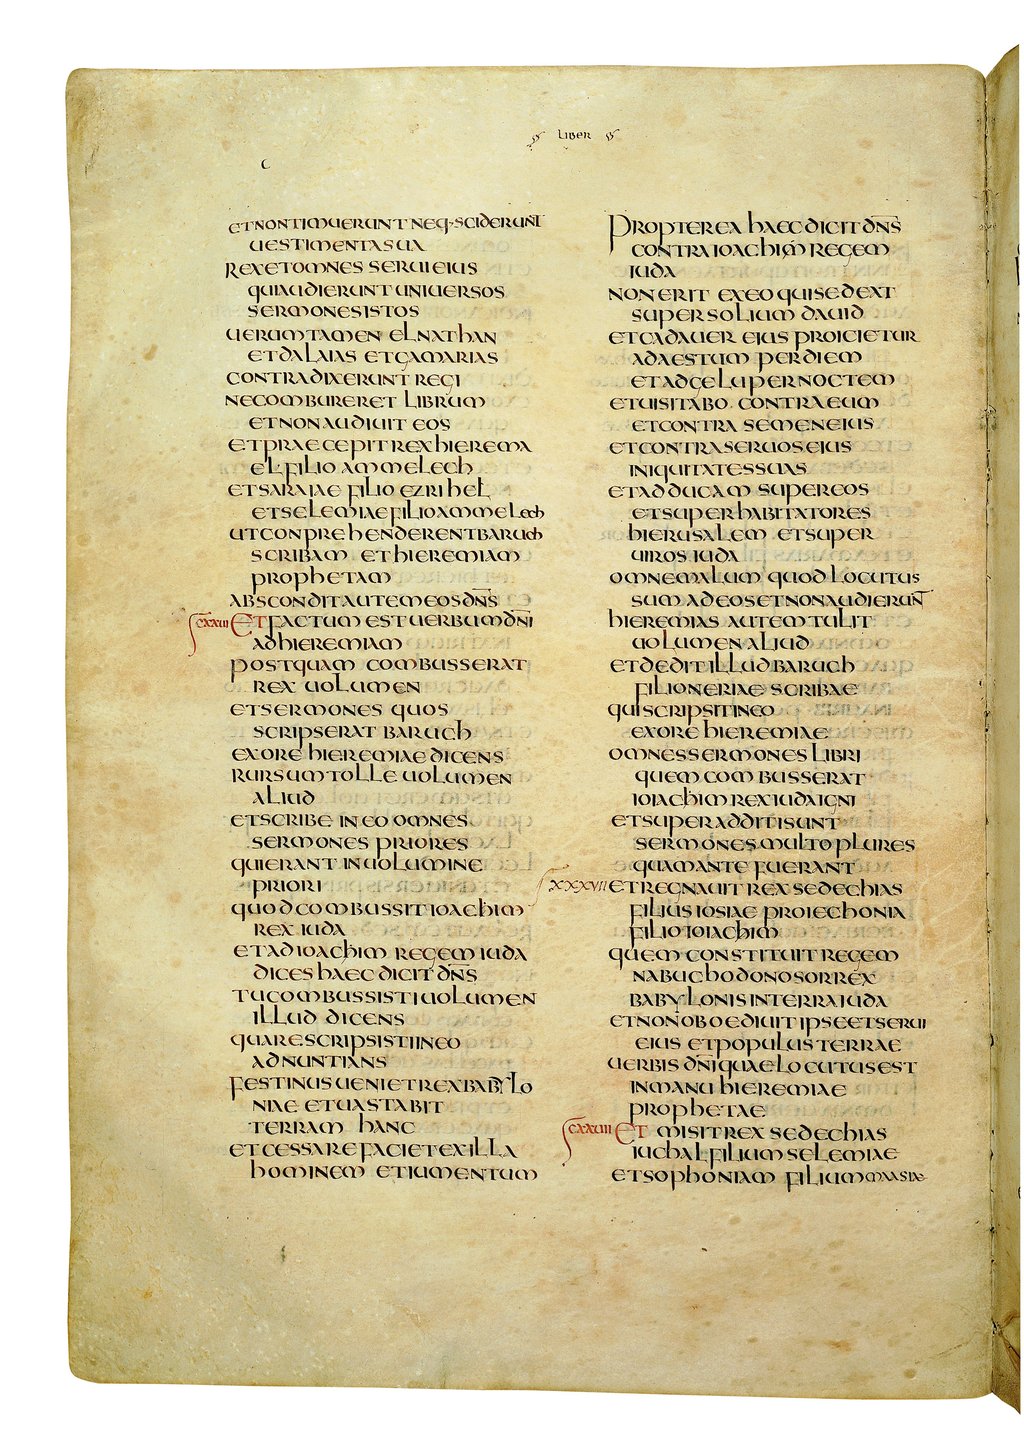 LIBER
ET NON TIMUERUNT NEQ· SCIDERUNT
UESTIMENTA SUA
REX ET OMNES SERUI EIUS
QUI AUDIERUNT UNIUERSOS
SERMONES ISTOS
UERUMTAMEN ELNATHAN
ET DALAIAS ET GAMARIAS
CONTRADIXERUNT REGI
NE COMBURERET LIBRUM
ET NON AUDIUIT EOS
ET PRAECEPIT REX HIEREMA
EL FILIO AMMELECH
ET SARAIAE FILIO EZRIHEL
ET SELEMIAE FILIO AMMELECH
UT CONPREHENDERENT BARUCH
SCRIBAM ET HIEREMIAM
PROPHETAM
ABSCONDIT AUTEM EOS DN̄S
CXXUII ET FACTUM EST UERBUM DN̄I
AD HIEREMIAM
POSTQUAM COMBUSSERAT
REX UOLUMEN
ET SERMONES QUOS
SCRIPSERAT BARUCH
EX ORE HIEREMIAE DICENS
RURSUM TOLLE UOLUMEN
ALIUD
ET SCRIBE IN EO OMNES
SERMONES PRIORES
QUI ERANT IN UOLUMINE
PRIORI
QUOD COMBUSSIT IOACHIM
REX IUDA
ET AD IOACHIM REGEM IUDA
DICES HAEC DICIT DN̄S
TU COMBUSSISTI UOLUMEN
ILLUD DICENS
QUARE SCRIPSISTI IN EO
ADNUNTIANS
FESTINUS UENIET REX BABYLO
NIAE ET UASTABIT
TERRAM HANC
ET CESSARE FACIET EX ILLA
HOMINEM ET IUMENTUM
PROPTEREA HAEC DICIT DN̄S
CONTRA IOACHIM REGEM
IUDA
NON ERIT EX EO QUI SEDEAT
SUPER SOLIUM DAUID
ET CADAUER EIUS PROICIETUR
AD AESTUM PER DIEM
ET AD GELU PER NOCTEM
ET UISITABO CONTRA EUM
ET CONTRA SEMEN EIUS
ET CONTRA SERUOS EIUS
INIQUITATES SUAS
ET ADDUCAM SUPER EOS
ET SUPER HABITATORES
HIERUSALEM ET SUPER
UIROS IUDA
OMNE MALUM QUOD LOCUTUS
SUM AD EOS ET NON AUDIERUN̄T
HIEREMIAS AUTEM TULIT
UOLUMEN ALIUD
ET DEDIT ILLUD BARUCH
FILIO NERIAE SCRIBAE
QUI SCRIPSIT IN EO
EX ORE HIEREMIAE
OMNES SERMONES LIBRI
QUEM COMBUSSERAT
IOIACHIM REX IUDA IGNI
ET SUPER ADDITI SUNT
SERMONES MULTO PLURES
QUAM ANTE FUERANT
XXXVII ET REGNAUIT REX SEDECHIAS
FILIUS IOSIAE PRO IECHONIA
FILIO IOIACHIM
QUEM CONSTITUIT REGEM
NABUCHODONOSOR REX
BABYLONIS IN TERRA IUDA
ET NON OBOEDIUIT IPSE ET SERUI
EIUS ET POPULUS TERRAE
UERBIS DN̄I QUAE LOCUTUS EST
IN MANU HIEREMIAE
PROPHETAE
CXXUIII ET MISIT REX SEDECHIAS
IUCHAL FILIUM SELEMIAE
ET SOPHONIAM FILIUM MAASIAE